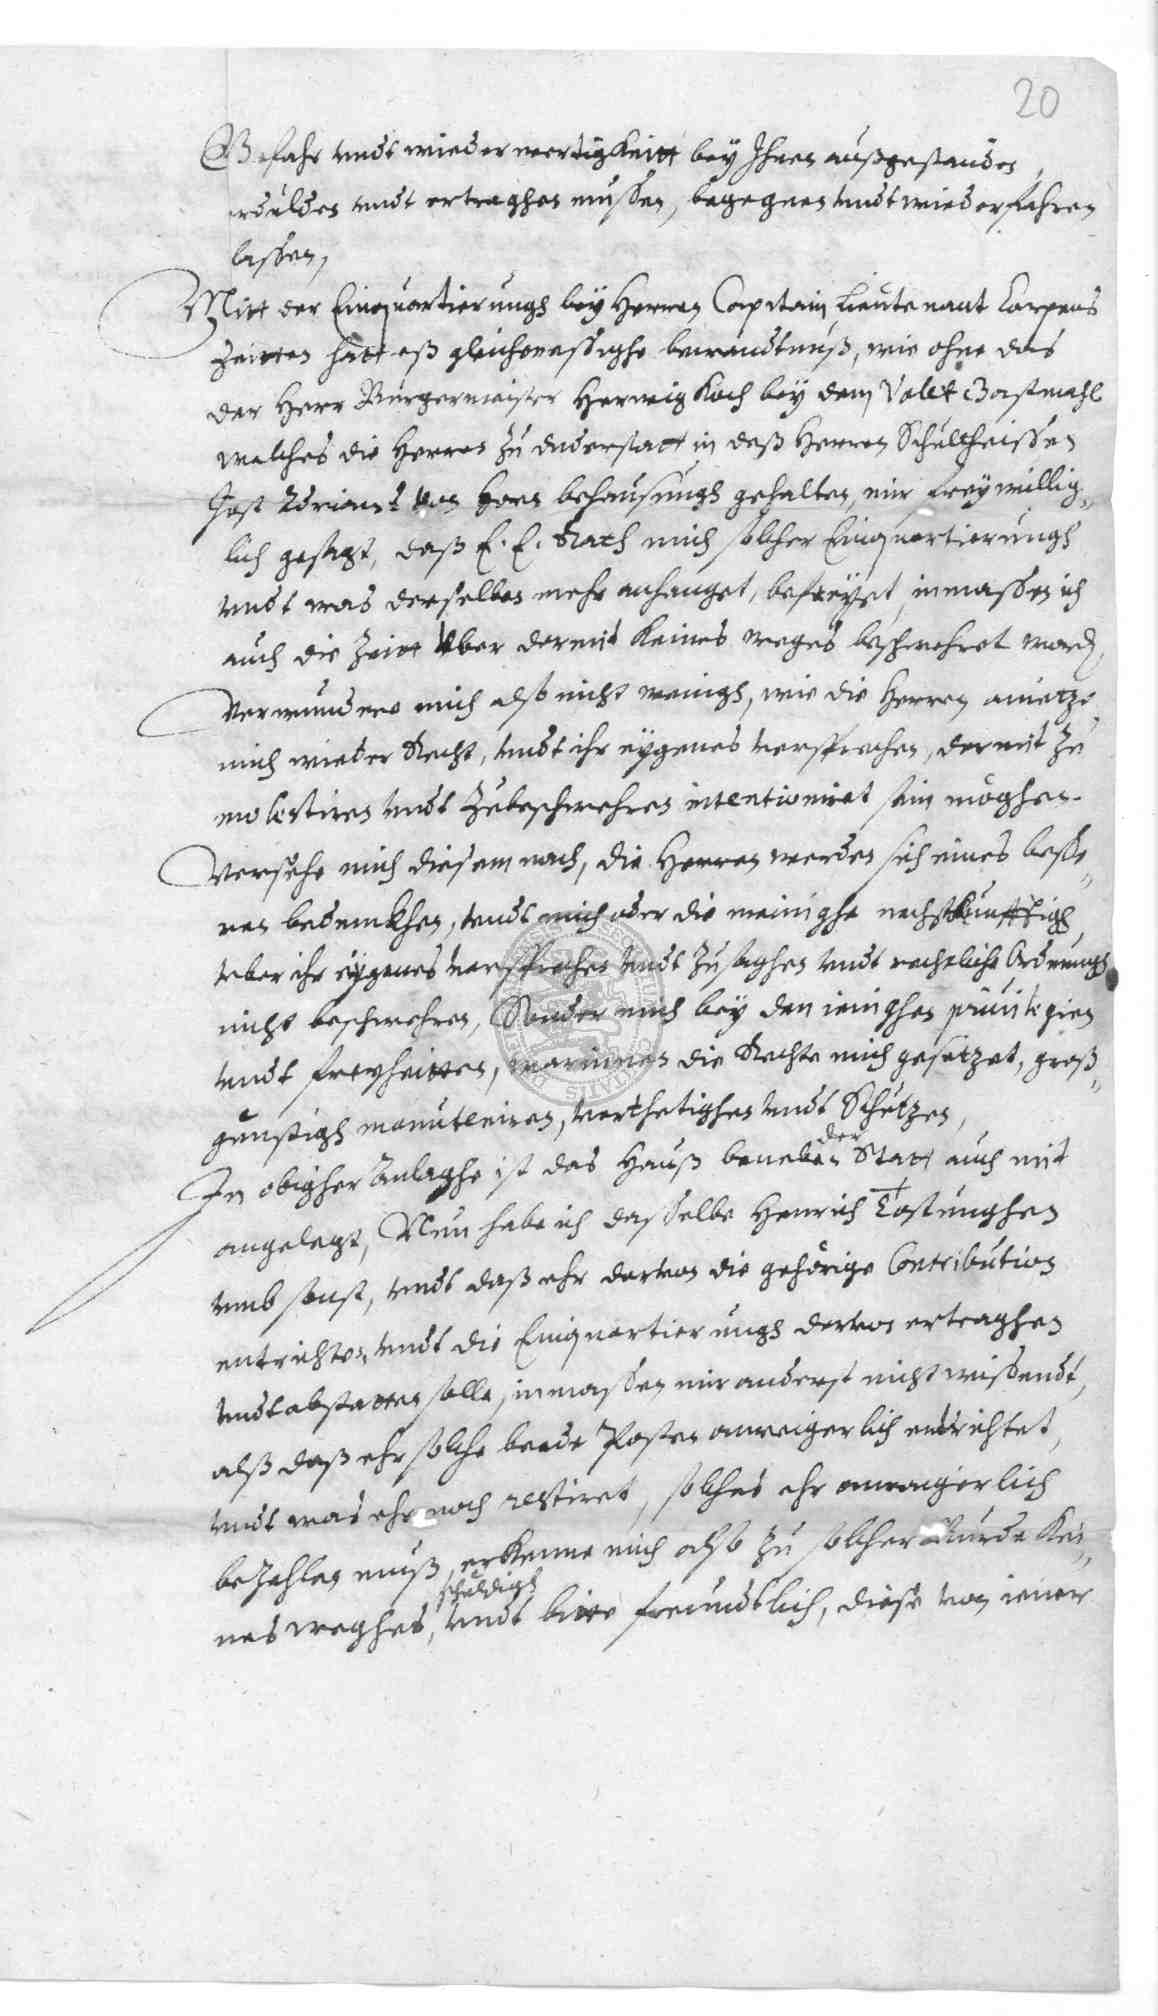 20
Gefahr undt wiederwertigkeitt bey Ihnen außgestanden,
erdulden undt ertraghen mußen, begegnen undt wiederfahren
laßen,
Mitt der Einquartierungh bey Herren Capitain Lieutenant Carpens
Zeitten hatt eß gleichmessighe bewandtnuß, wie ohne das
der Herr Burgermeister Herwig Koch bey dem Valet Gastmahl
welches die Herren zu Duderstatt in deß Herren Schultheissen
Jost Adriandt von Horn behausungh gehalten, mir freywillig„
lich gesagt, daß E. E. Rath mich solcher Einquartierungh
undt was derselben mehr anhanget, befreyet, inmaßen ich
auch die Zeitt uber dermit keines weges beschwehret word,
Verwundere mich also nicht wenigh, wie die Herren anietzo
mich wieder Recht, undt ihr eygenes versprechen, dermit zu
molestiren undt zubeschwehren intentioniret sein möghen.
Versehe mich diesem nach, die Herren werden sich eines beße„
ren bedenckhen, undt mich oder die meinighe nechstkunfftigh
uber ihr eygenes versprechen undt zusaghen undt rechtliche Ordnungh
nicht beschwehren, Sonder mich bey den ienighen priuilegien
undt freyheitten, worinnen die Rechte mich gesetzet, groß„
gunstigh manuteniren, verthetighen undt Schutzen,
In obigher Anlaghe ist das Hauß beneben der Statt auch mit
angelegt, Nun habe ich dasselbe Henrich Tostunghen
umb sonst, undt daß ehr dervon die gehörige Contribution
entrichten, undt die Einquartierungh dervon ertraghen
undt abstatten solle, inmaßen mir anderst nicht wißendt,
alß daß ehr solche beede Posten onweigerlich endrichtet,
undt was ehr noch restiret, solches ehr onweigerlich
bezahlen muß, erkenne mich also zu solcher Burde kei„
nes weghes schuldigh, undt bitte freundtlich, diese von iener